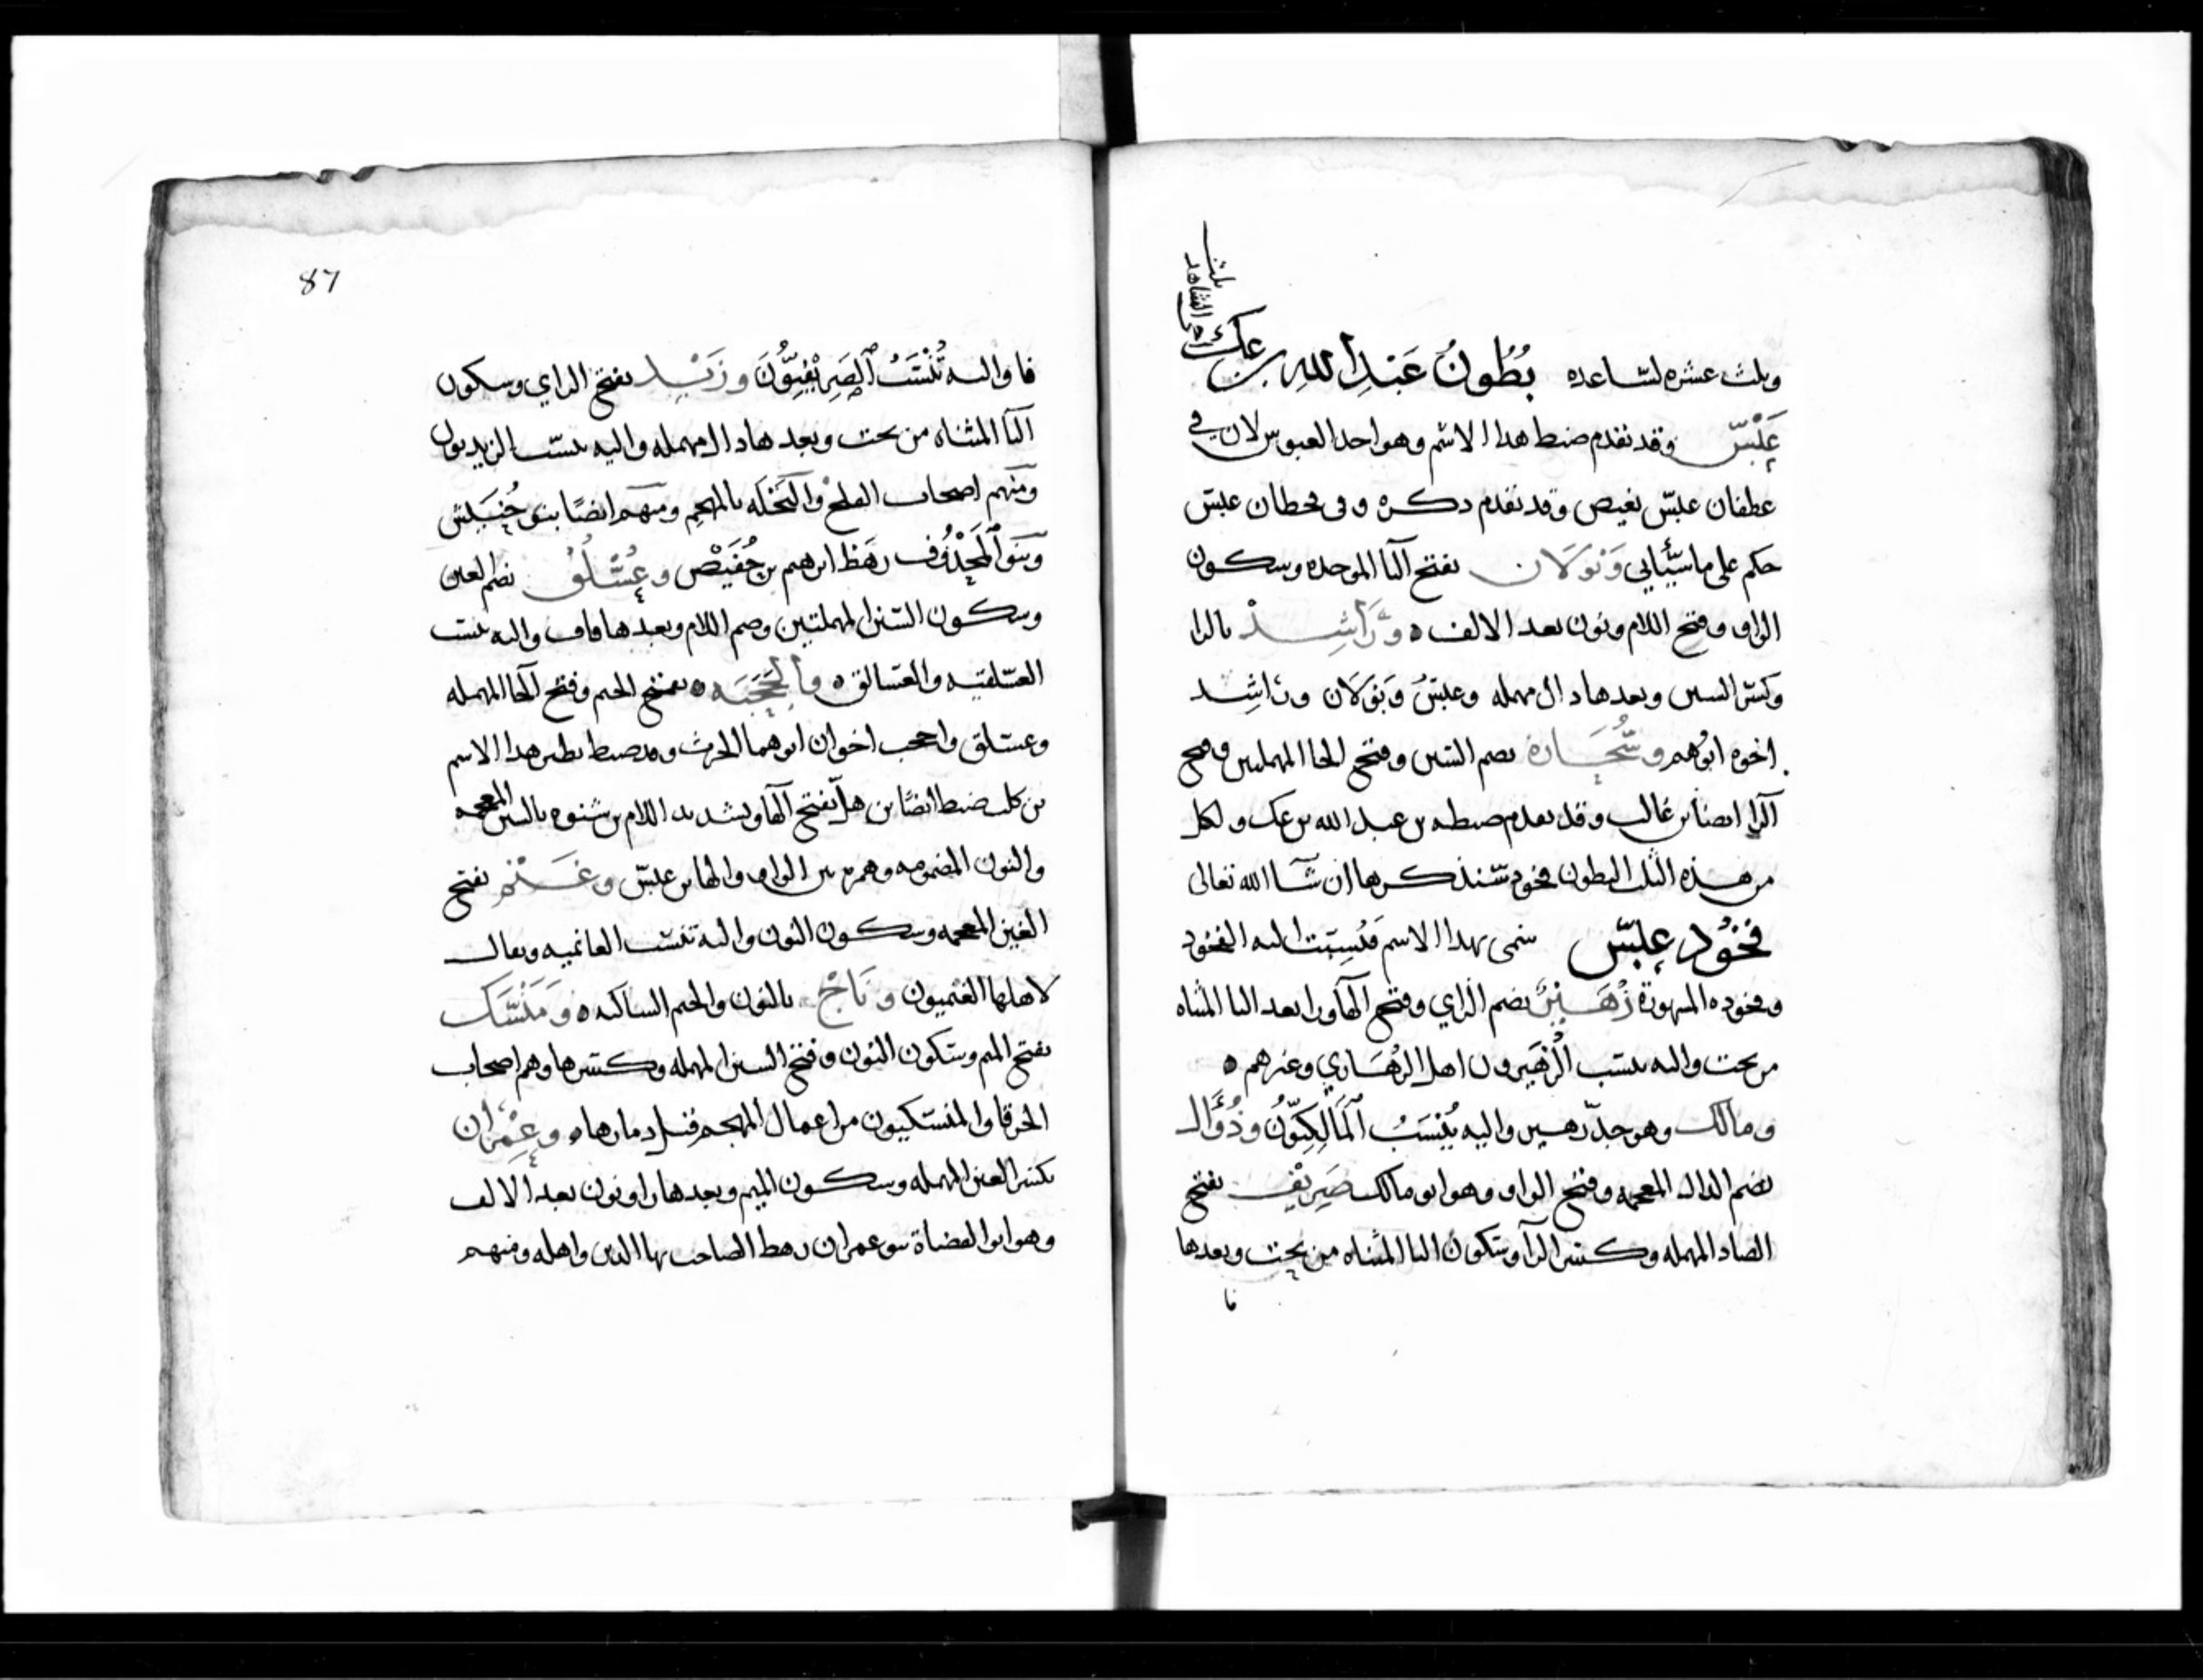 وثلث عشره لساعده بُطُونُ عَبْدِ اللهِ بن عك
عَبْسٌ وقد تقدم ضبط هدا الاسم وهو احد العبوس لان في
غطفان عبس بغيض وقد تقدم دكره وفي قحطان عبس
حكم على ما سيأتي وَبَوْلَان بفتح البا الموحده وسكون
الواو وفتح اللام ونون بعد الالف ه وَرَاشِدْ بالرا
وكسر السين وبعدها دال مهمله وعبسٌ وَبَوْلَان ورَاشِد
اخوه ابوهم وسُحَارة بضم السين وفتح الحا المهملتين وفتح
الرا ايضا بن غالب وقد تقدم ضبطه بن عبد الله بن عك ولكل
من هذه الثلث البطون فخود سنذكرها ان شا الله تعالى
فخُود عبس سمى بهدا الاسم فنُسِبَت اليه الفخود
وفخوده المشهورة زُهَيْرٌ بضم الزاي وفتح الها ورا بعد اليا المثناه
من تحت واليه ينسب الزُهَيرون اهل الزهاري وغيرهم ه
ومالك وهو جدّ زهير واليه يُنْسَبُ المَالِكِيّونُ وذُوَال
بضم الدال المعجمه وفتح الواو وهو ابو مالك صَرِيْف بفتح
الصاد المهمله وكسر الرا وسكون اليا المثناه من تحت وبعدها
فا
87
فا واليه تُنْسَبُ الصَرِيْفِيّونَ وزَيْد بفتح الزاي وسكون
اليا المثناه من تحت وبعدها دال مهمله واليه ينسب الزيديون
ومنهم اصحاب والنخله بالمهجم ومنهم ايضًا بنو
وبنو رهط ابرهيم بن وعُسْلُق بضم العين
وسكون السين المهملتين وضم اللام وبعدها قاف واليه ينسب
العسلقيه والعسالق ه والجَحَبَه ه بفتح الجيم وفتح الحا المهمله
وعسلق واجحب اخوان ابوهما الحرث وقد ضبط نظير هدا الاسم
بن كلب ضبط ايضًا بن هلّ بفتح الها وتشديد اللام بن شنوه بالشين المعجمه
والنون المضمومه وهمزه بين الواو والها بن عبس وغَنْم بفتح
الغين المعجمه وسكون النون واليه تنسب الغانميه ويقال
لاهلها الغنميون ونَاجْ بالنون والجيم الساكنه ه وَمَنْسَك
بفتح الميم وسكون النون وفتح السين المهمله وكسرها وهم اصحاب
الحرقا والمنسكيون من اعمال المهجم قبل دمارها ه وعِمْرَان
بكسر العين المهمله وسكون الميم وبعدها را ونون بعد الالف
وهو ابو القضاة بنو عمران رهط الصاحب بها الدين واهله ومنهم